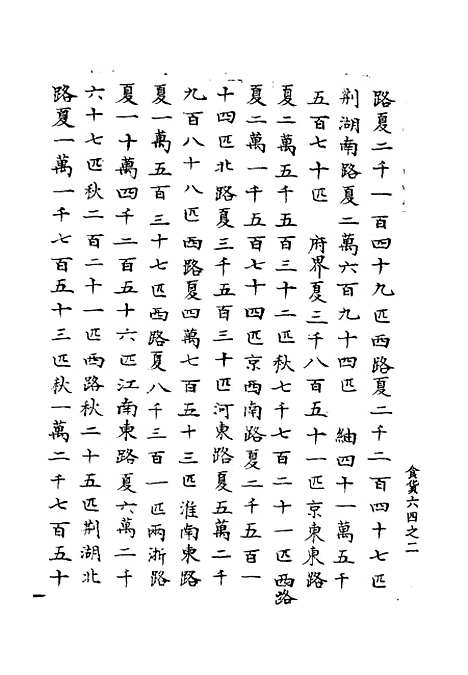 路夏二千一百四十九匹西路夏二千二百四十七匹
荆湖南路夏二萬六百九十四匹　紬四十一萬五千
五百七十匹　府界夏三千八百五十一匹京東東路
夏二萬五千五百三十二匹秋七千七百二十一匹西路
夏二萬一千五百七十四匹京西南路夏二千五百一
十四匹北路夏三千五百三十匹河東路夏五萬二千
九百八十八匹西路夏四萬七百五十三匹淮南東路
夏一萬五百三十七匹西路夏八千三百一匹兩浙路
夏一十萬四千二百五十六匹江南東路夏六萬二千
六十七匹秋二百二十一匹西路秋二十五匹荆湖北
路夏一萬一千七百五十三匹秋一萬二千七百五十
食貨六四之二